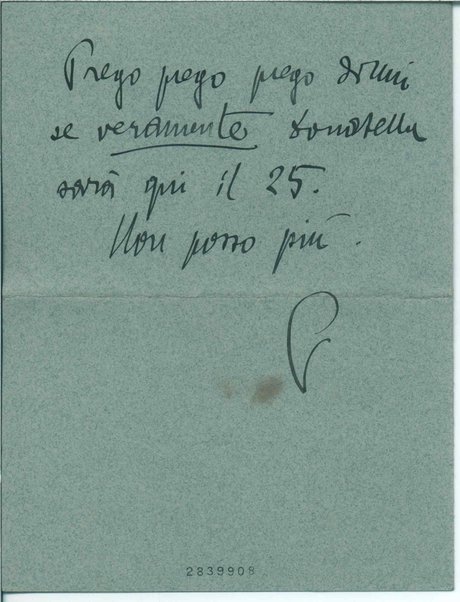 Prego prego prego dirmi
se veramente Donatella
sarà qui il 25.
Non posso più.
2839908